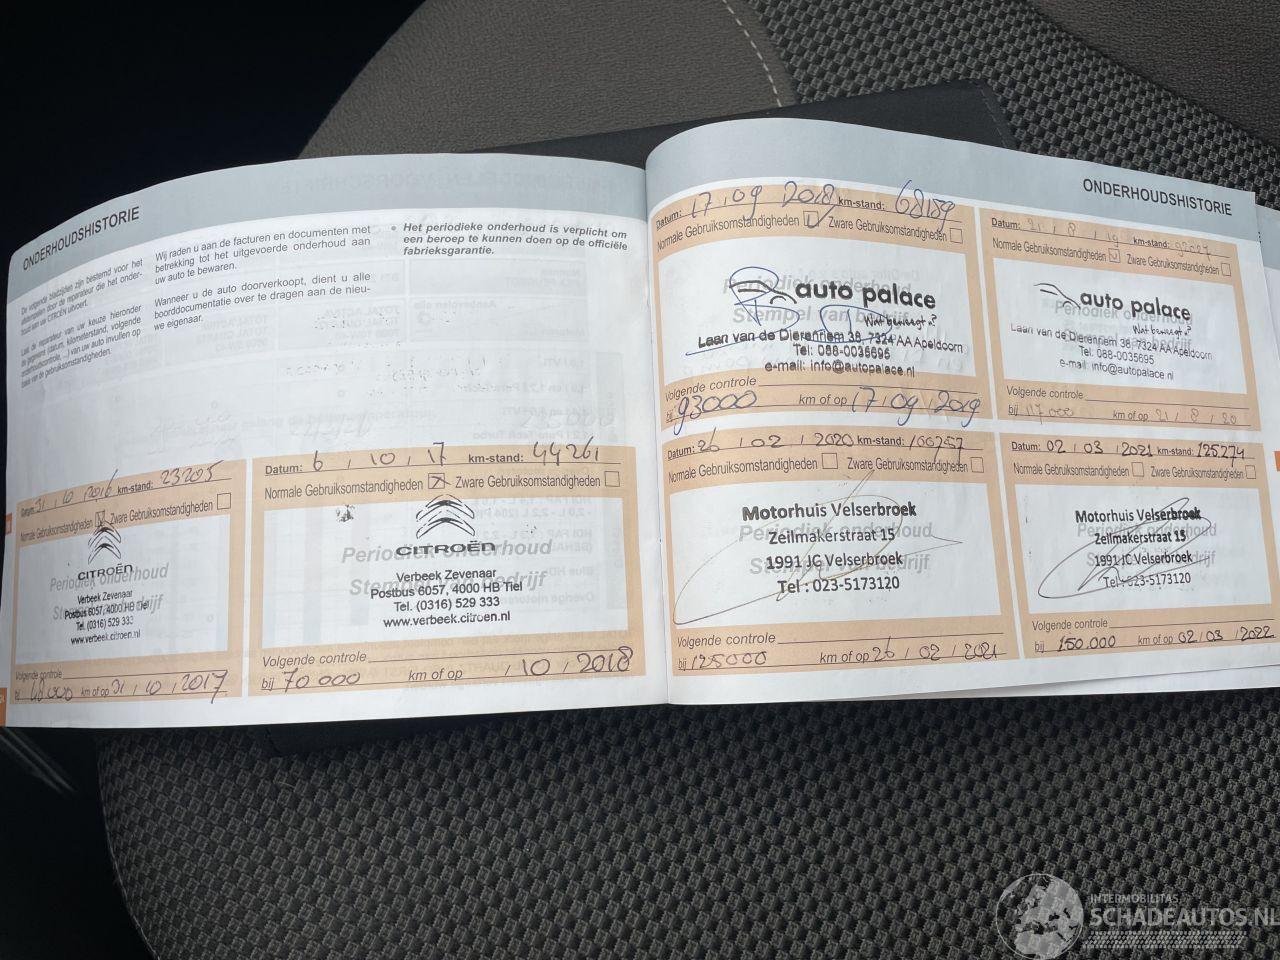 ONDERHOUDSHISTORIE
De volgende bladzijden zijn bestemd voor het
afstempelen door de reparateur die het onder-
houd aan uw CITROËN uitvoert.
Laat de reparateur van uw keuze hieronder
de gegevens (datum, kilometerstand, volgende
onderhoudscontrole, ...) van uw auto invullen op
basis van de gebruiksomstandigheden.
Wij raden u aan de facturen en documenten met
betrekking tot het uitgevoerde onderhoud aan
uw auto te bewaren.
Wanneer u de auto doorverkoopt, dient u alle
boorddocumentatie over te dragen aan de nieu-
we eigenaar.
• Het periodieke onderhoud is verplicht om
een beroep te kunnen doen op de officiële
fabrieksgarantie.
Datum: 31 / 10 / 2016 km-stand: 23205
Normale Gebruiksomstandigheden Zware Gebruiksomstandigheden
CITROËN
Periodiek onderhoud
Stempel van bedrijf
Verbeek Zevenaar
Postbus 6057, 4000 HB Tiel
Tel. (0316) 529 333
www.verbeek.citroen.nl
Volgende controle
bij 48000 km of op 31 / 10 / 2017
Datum: 6 / 10 / 17 km-stand: 44261
Normale Gebruiksomstandigheden X Zware Gebruiksomstandigheden
CITROËN
Periodiek onderhoud
Stempel van bedrijf
Verbeek Zevenaar
Postbus 6057, 4000 HB Tiel
Tel. (0316) 529 333
www.verbeek.citroen.nl
Volgende controle
bij 70 000 km of op / 10 / 2018
ONDERHOUDSHISTORIE
Datum: 17 / 09 / 2018 km-stand: 68159
Normale Gebruiksomstandigheden Zware Gebruiksomstandigheden
Periodiek onderhoud
auto palace
Stempel van bedrijf
Wat beweegt u?
Laan van de Dierenriem 38, 7324 AA Apeldoorn
Tel: 088-0035695
e-mail: info@autopalace.nl
Volgende controle
bij 93000 km of op 17 / 09 / 2019
Datum: 21 / 8 / 19 km-stand: 92027
Normale Gebruiksomstandigheden Zware Gebruiksomstandigheden
auto palace
Periodiek onderhoud
Wat beweegt u?
Laan van de Dierenriem 38, 7324 AA Apeldoorn
Tel: 088-0035695
e-mail: info@autopalace.nl
Volgende controle
bij 117.000 km of op 21 / 8 / 20
Datum: 26 / 02 / 2020 km-stand: 100257
Normale Gebruiksomstandigheden Zware Gebruiksomstandigheden
Motorhuis Velserbroek
Periodiek onderhoud
Zeilmakerstraat 15
Stempel van bedrijf
1991 JG Velserbroek
Tel : 023-5173120
Volgende controle
bij 125000 km of op 26 / 02 / 2021
Datum: 02 / 03 / 2021 km-stand: 125.274
Normale Gebruiksomstandigheden Zware Gebruiksomstandigheden
Motorhuis Velserbroek
Periodiek onderhoud
Zeilmakerstraat 15
Stempel van bedrijf
1991 JG Velserbroek
Tel : 023-5173120
Volgende controle
bij 150.000 km of op 02 / 03 / 2022
INTERMOBILITAS
SCHADEAUTOS.NL